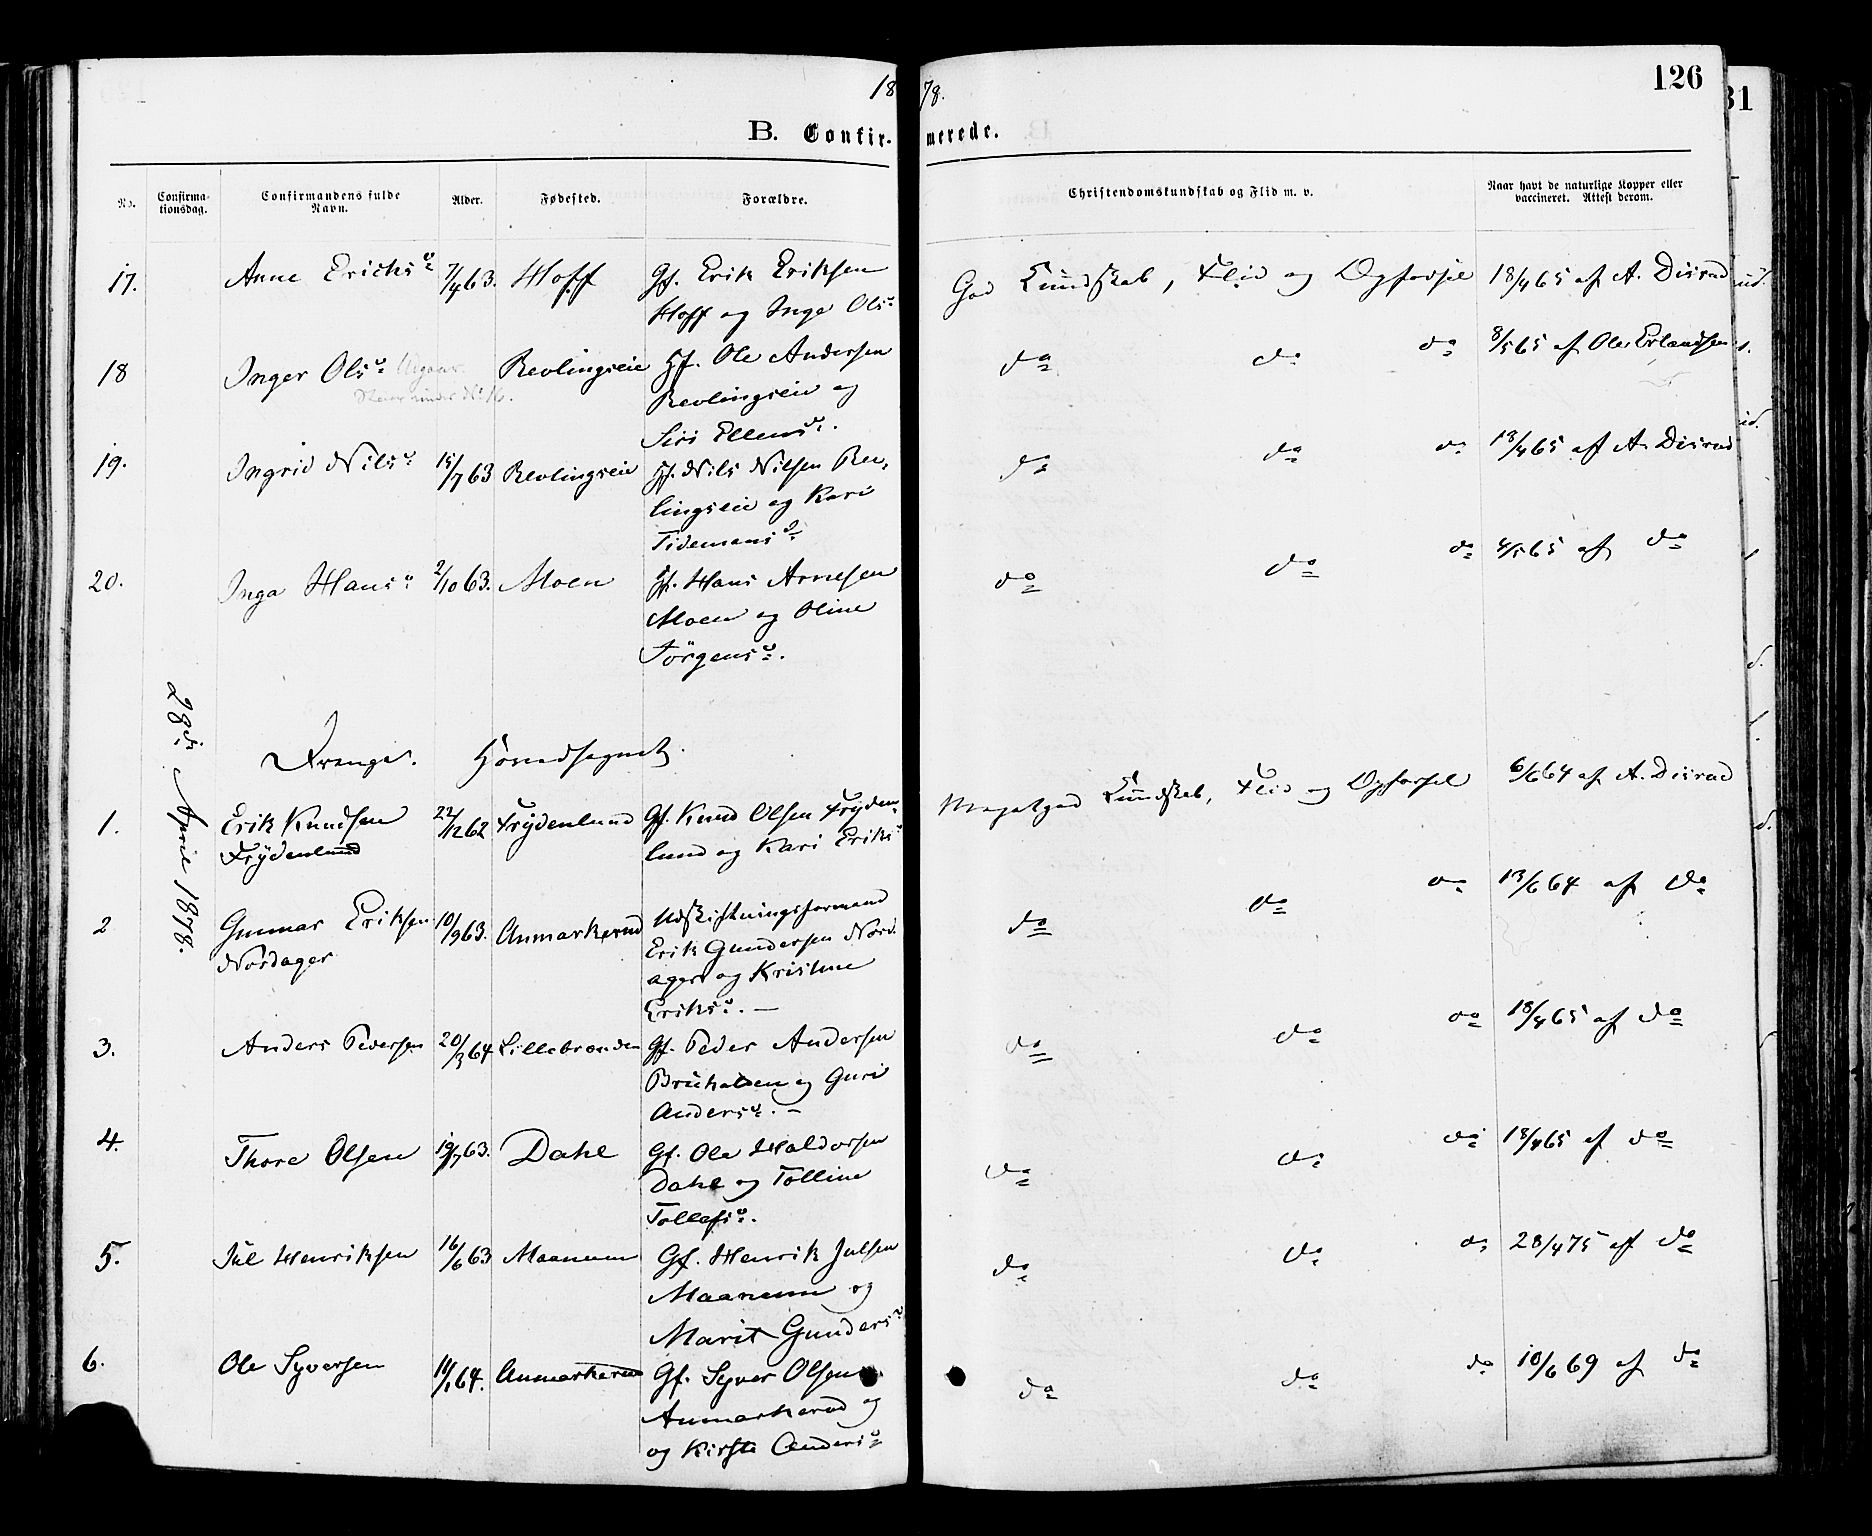 1878.
126
31
B. Confirmerede.
No.
Confirmationsdag.
Confirmandens fulde Navn.
Alder.
Fødested.
Forældre.
Christendomskundskab og Flid m. v.
Naar havt de naturlige Kopper eller vaccineret. Attest derom.
17. Anne Erichsd. 7/4 63. Hoff Gf. Erik Eriksen God Kundskab, Flid og Opførsel 18/4 65 af A. Disrud
Hoff og Inge Olsd.
18 Inger Olsd. Revlingseie Hf. Ole Andersen do do do 8/5 65 af Ole Erlandsen
under No 16. Revlingseie og
Siri Ellensd.
19. Ingrid Nilsd. 15/7 63 Revlingseie Hf. Nils Nilsen Rev- do do do 18/4 65 af A. Disrud
lingseie og Kari
Tidemansd.
20. Inga Hansd. 2/10 63. Moen Hf. Hans Arnesen do do do 4/5 65 af do
Moen og Oline
Jörgensd.
28de April 1878.
Drenge. Hovedsognet.
1. Erik Knudsen 22/12 62 Frydenlund Gf. Knud Olsen Fryden- Megetgod Kundskab, Flid og Opførsel 6/6 64 af A. Disrud
Frydenlund lund og Kari Eriksd.
2 Gunnar Eriksen 10/9 63. Anmarkerud Udskiftningsformand do do do 13/6 64 af do
Nordager Erik Gundersen Nord-
ager og Kristine
Eriksd. —
3. Anders Pedersen 20/3 64 Lillebranden Gf. Peder Andersen do do do 18/4 65 af do
og Guri
Andersd. —
4. Thore Olsen 19/7 63. Dahl Gf. Ole Haldorsen do do do 18/4 65 af do
Dahl og Tolline
Tollefsd.
5. Jul Henriksen 16/6 63 Maanum Gf. Henrik Julsen do do do 28/4 75 af do
Maanum og
Marit Gundersd.
6. Ole Syversen 11/1 64. Anmarkerud Gf. Syver Olsen do do do 10/6 69 af do
Anmarkerud og
og Kirsti Andersd.